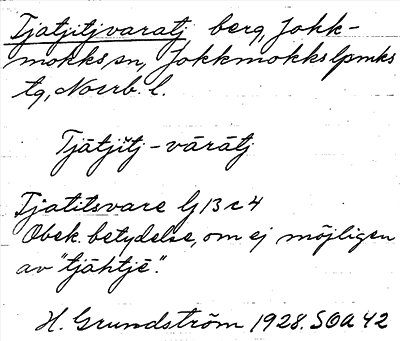 Tjatjitjvaratj berg, Jokk-
mokks sn, Jokkmokks lpmks
tg, Norrb. l.
Tjātjĭtj-vārātj
Tjatitsvare lj 13 c 4
Obek. betydelse, om ej möjligen
av "tjāhtjē".
H. Grundström 1928. SOA 42